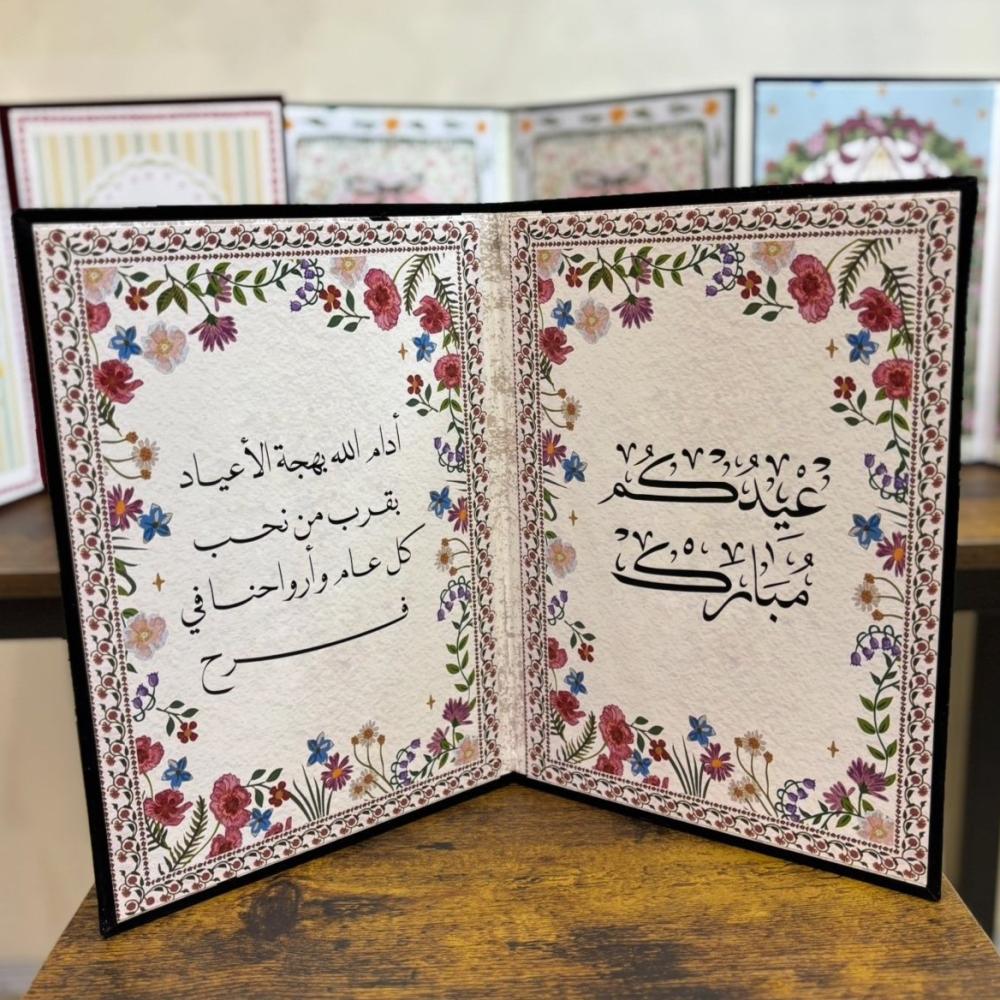 عِيْدُكُمْ
مُبَارَكْ
أدام الله بهجة الأعياد
بقرب من نحب
كل عام وأرواحنا في
فرح